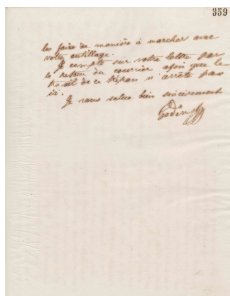 359
les faire de manière à marcher avec
votre outillage.
Je compte sur votre lettre par
le retour du courrier afin que le
travail de ce Dépar n'arrête pas
ici.
Je vous salue bien sincèrement
Godin